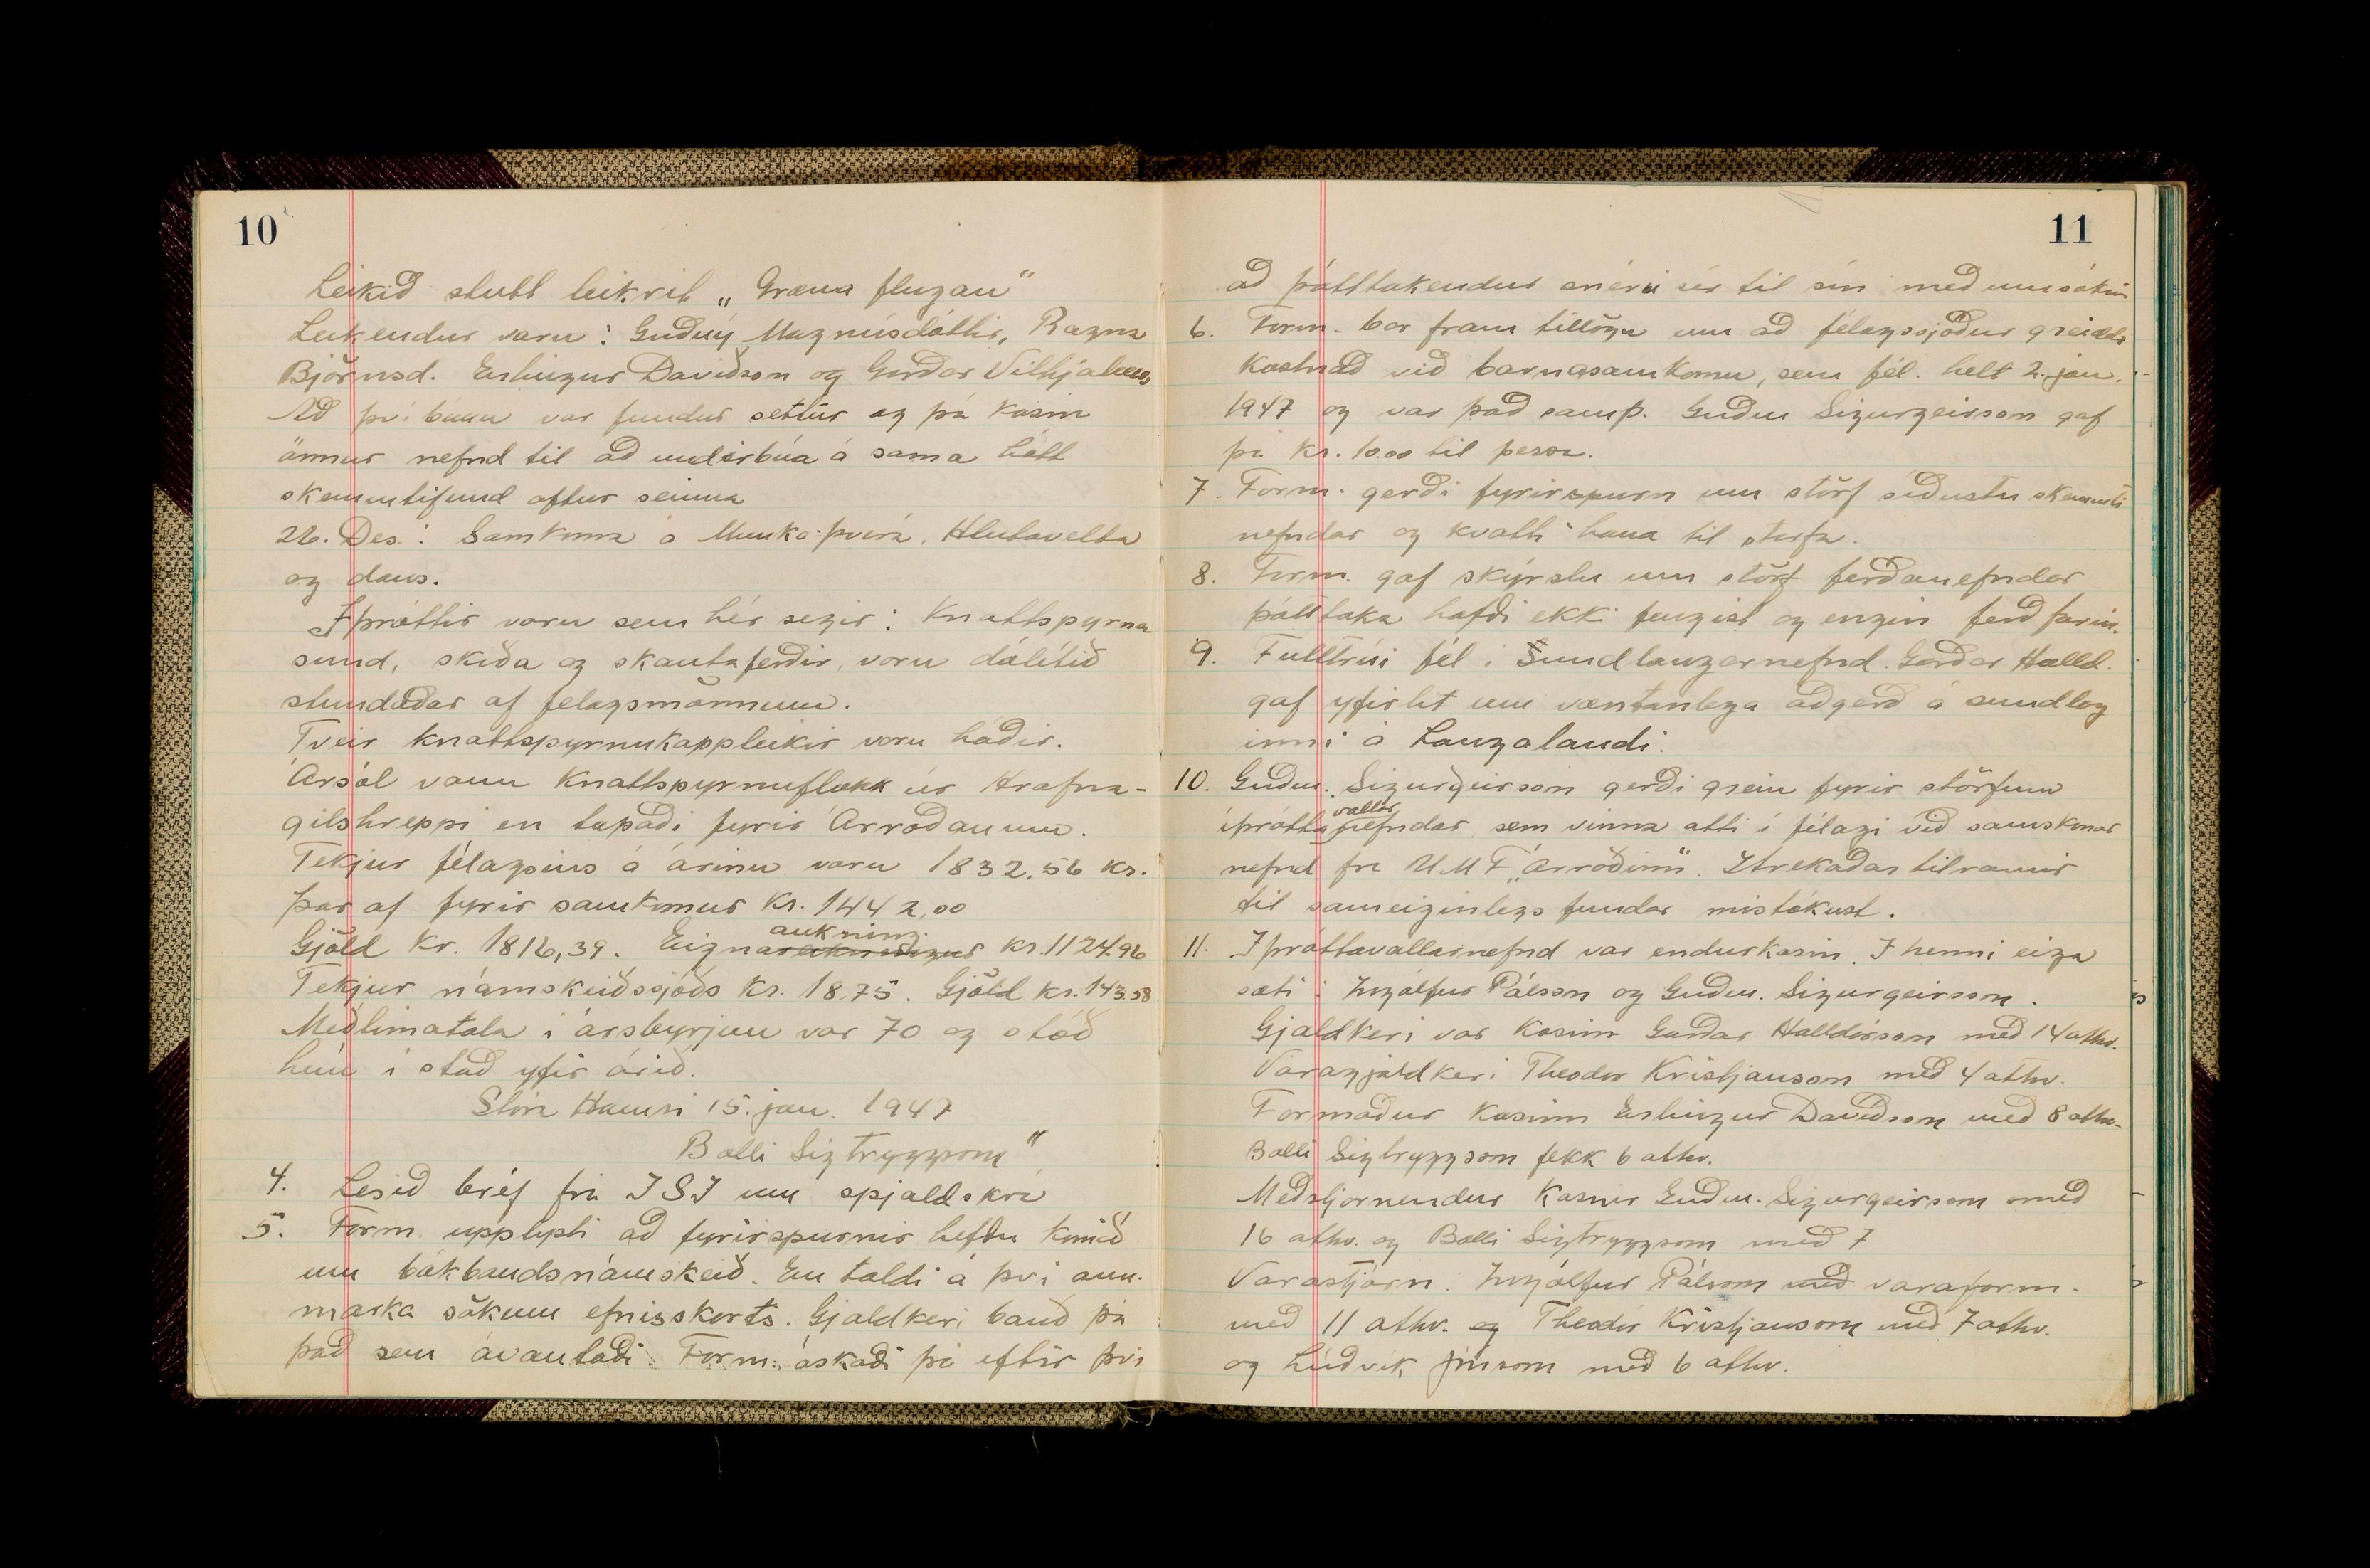 10
Leikið stutt leikrit „Græna flugan"
Leikendur voru: Guðný Magnúsdóttir, Ragna
Björnsd. Erlingur Davíðsson og Garðar Vilhjálms
Að því búnu var fundur settur og þá kosin
önnur nefnd til að undirbúa á sama hátt
skemmtifund aftur seinna
26. Des: Samkoma á Munka-þverá. Hlutavelta
og dans.
Íþróttir voru sem hér segir: Knattspyrna
sund, skíða og skautaferðir, voru dálítið
stundaðar af félagsmönnum.
Tveir knattspyrnukappleikir voru háðir.
Ársól vann Knattspyrnuflokk úr Hrafna-
gilshreppi en tapaði fyrir Árroðanum.
Tekjur félagsins á árinu voru 1832.56 kr.
þar af fyrir samkomur Kr. 1442,00
Gjöld Kr. 1816,39. Eignaaukning kr. 1124.96
Tekjur námskeiðssjóðs Kr. 18.75. Gjöld kr. 143.58
Meðlimatala í ársbyrjun var 70 og stóð
hún í stað yfir árið.
Stóra Hamri 15. jan. 1947
Balli Sigtryggsson"
4. Lesið bréf frá ISI um spjaldskrá
5. Form. upplýsti að fyrirspurnir hefðu komið
um bókbandsnámskeið. En taldi á því ann-
marka sökum efnisskorts. Gjaldkeri bauð þá
það sem ávantaði. Form. óskaði þá eftir því
11
að þátttakendur snéru sér til sín með umsókn
6. Form. bar fram tillögu um að félagssjóður greiddi
Kostnað við barnasamkomu, sem fél. helt 2. jan.
1947 og var það samþ. Guðm Sigurgeirsson gaf
þá Kr. 10.00 til þessa.
7. Form. gerði fyrirspurn um störf síðustu skemmti
nefndar og kvatti hana til starfa.
8. Form. gaf skýrslu um störf ferðanefndar
þátttaka hafði ekki fengist og engin ferð farin.
9. Fulltrúi fél í Sundlaugarnefnd. Garðar Halld.
gaf yfirlit um væntanlega aðgerð á sundlaug
inni á Laugalandi.
10. Guðm. Sigurgeirsson gerði grein fyrir störfum
íþróttavallarnefndar, sem vinna átti í félagi við samskonar
nefnd frá U.M.F. „Árroðinn". Ítrekaðar tilraunir
til sameiginlegs fundar mistókust.
11. Íþróttavallarnefnd var endurkosin. I henni eiga
sæti: Ingólfur Pálsson og Guðm. Sigurgeirsson.
Gjaldkeri var kosinn Garðar Halldórsson með 14 atkv.
Varagjaldkeri Theodor Kristjansson með 4 atkv.
Formaður kosinn Erlingur Davíðsson með 8 atkv.
Balli Sigtryggsson fekk 6 atkv.
Meðstjornendur Kosnir Guðm. Sigurgeirsson með
16 atkv. og Balli Sigtryggsson með 7
Varastjórn. Ingólfur Pálsson með varaform.
með 11 atkv. og Theodór Kristjansson með 7 atkv.
og Lúðvík Jónsson með 6 atkv.